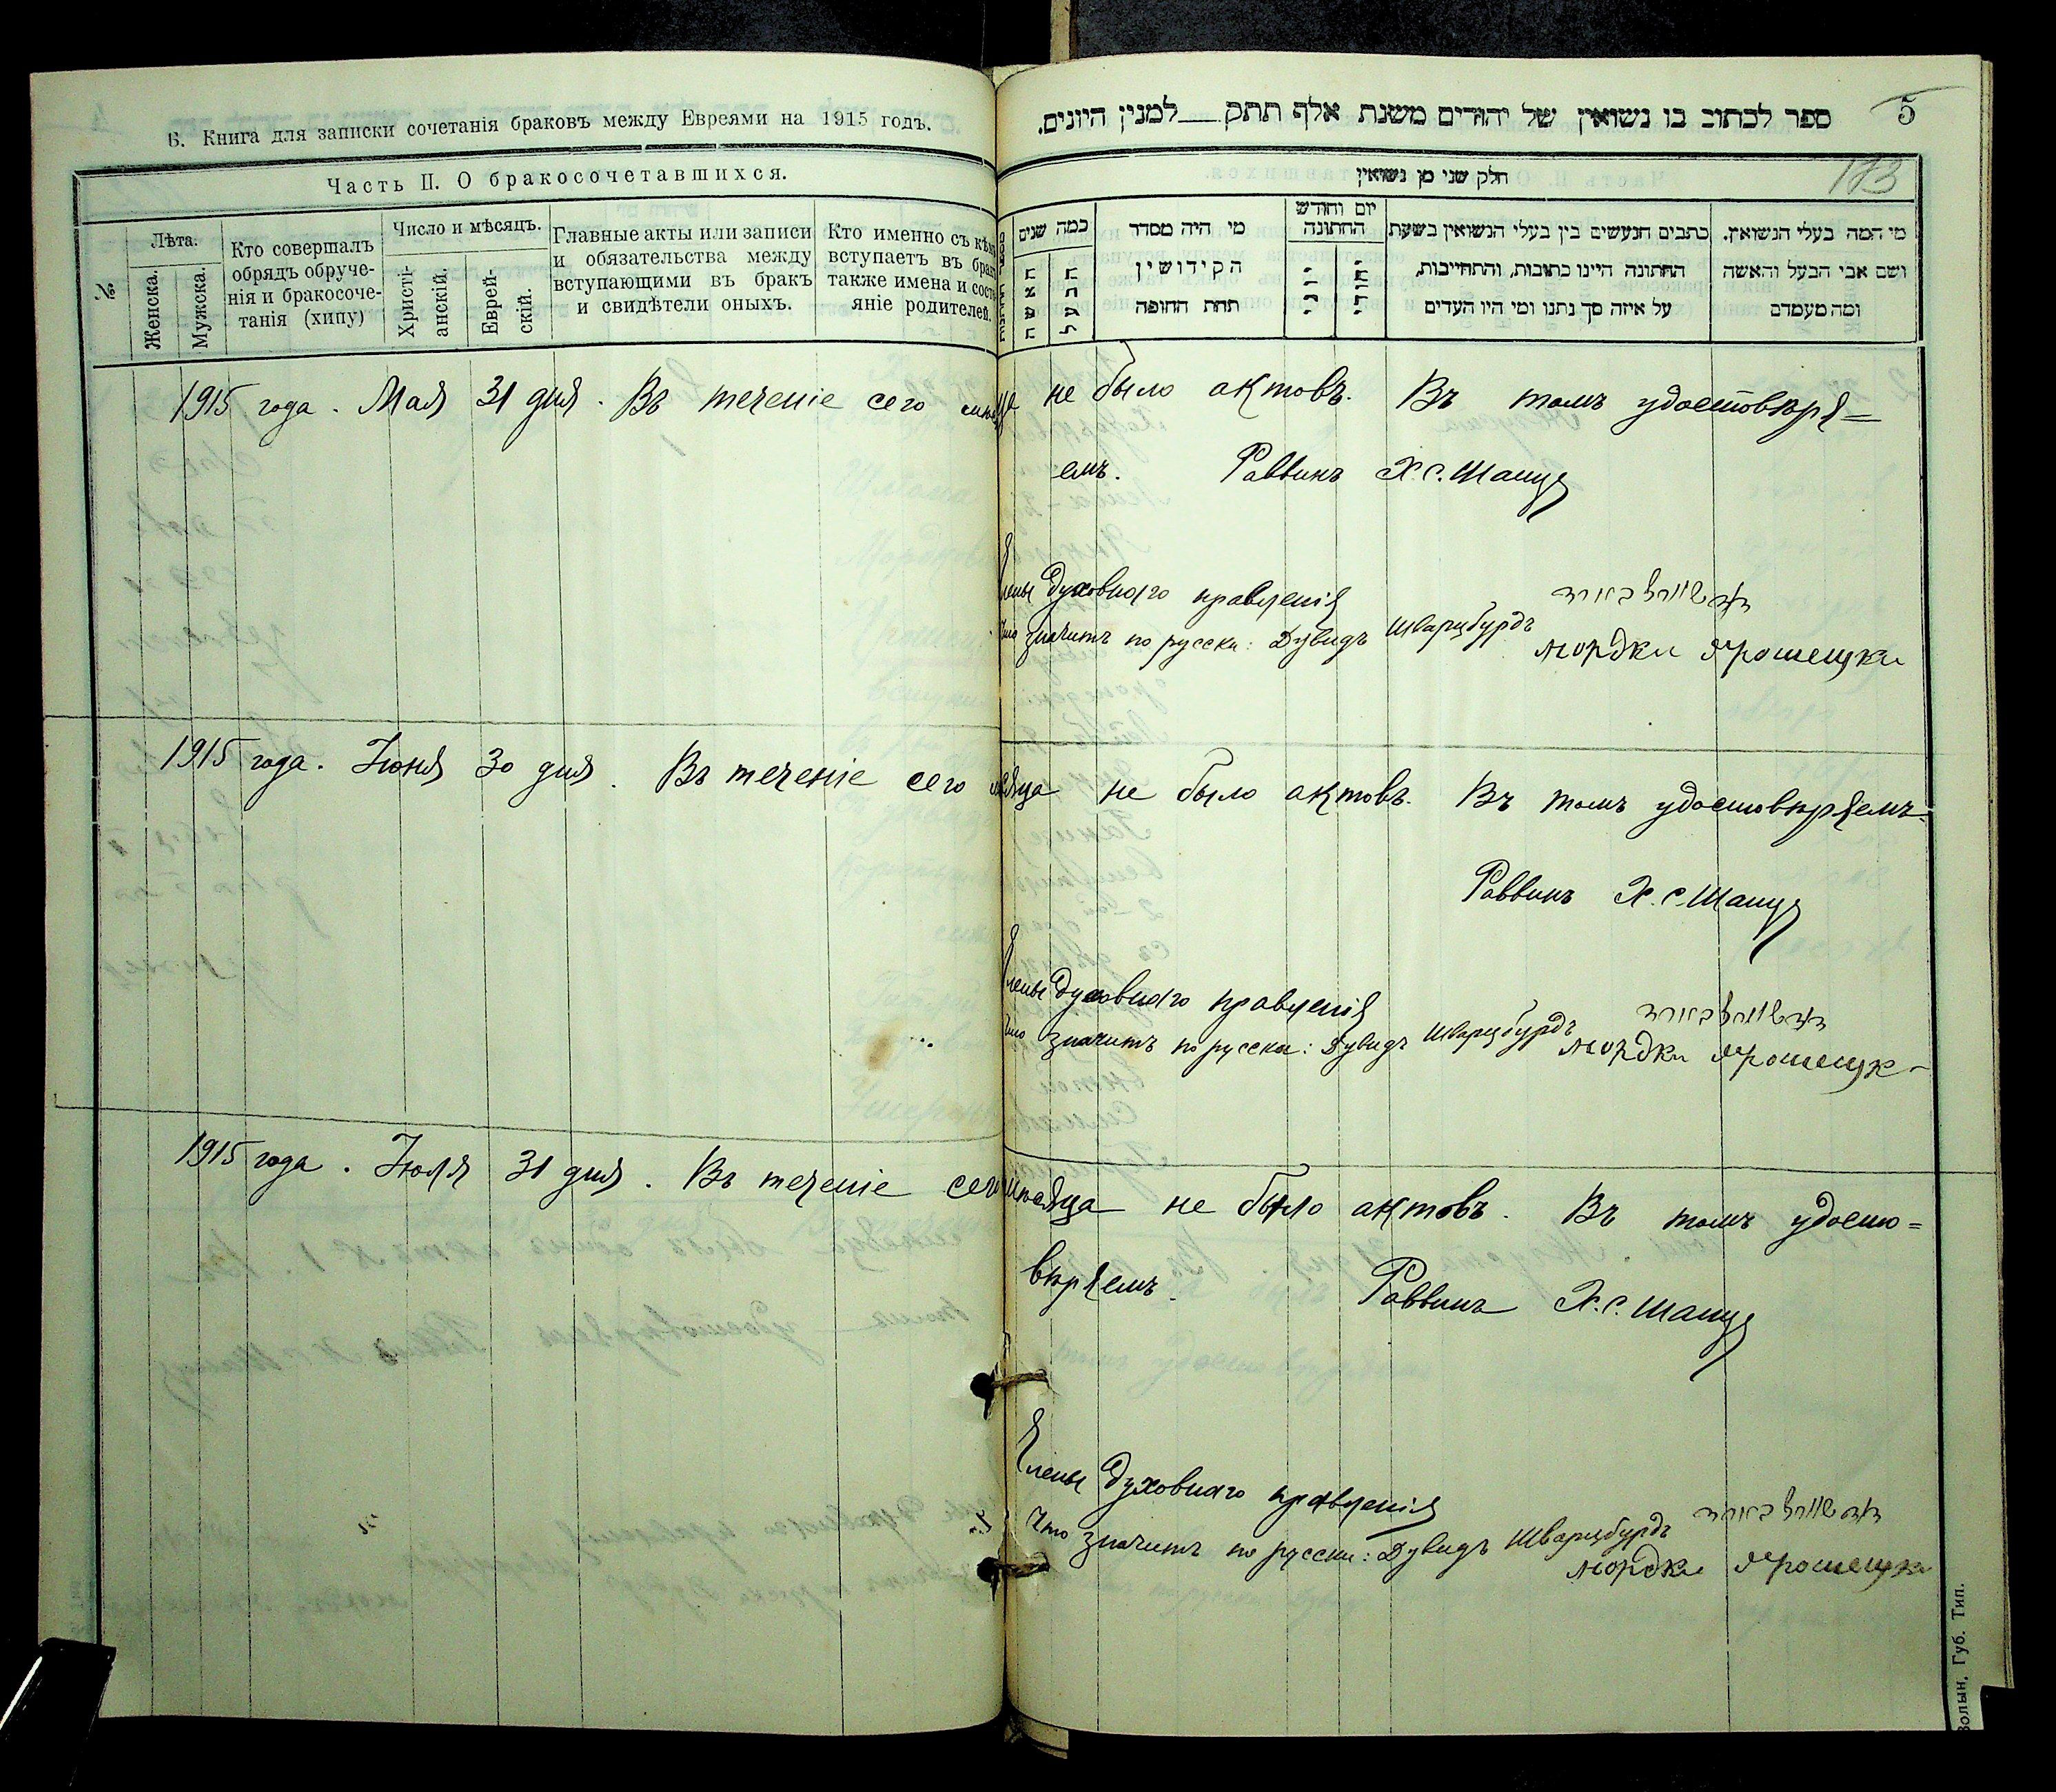 Б. Книга для записки сочетанія браковъ между Евреями на 1915 годъ.
ספר לכתוב בו נשואין של יהודים משנת אלף תתק למנין היונים.
5
Часть II. О бракосочетавшихся.
חלק שני מן נשואין
173
№
Лѣта.
Женска.
Мужска.
Кто совершалъ
обрядъ обруче-
нія и бракосоче-
танія (хипу)
Число и мѣсяцъ.
Христі-
анскій.
Еврей-
скій.
Главные акты или записи
и обязательства между
вступающими въ бракъ
и свидѣтели оныхъ.
Кто именно съ кѣмъ
вступаетъ въ бракъ
также имена и состо-
яніе родителей.
כמה שנים
האשה
הבעל
מי היה מסדר
הקידושין
תחת החופה
יום וחודש
החתונה
יוני
יהודי
כתבים הנעשים בין בעלי הנשואין בשעת
החתונה היינו כתובות, והתחייבות,
על איזה סך נתנו ומי היו העדים
מי המה בעלי הנשואין.
ושם אבי הבעל והאשה
ומה מעמדם
1915 года. Мая 31 дня. Въ теченіе сего мѣсяца не было актовъ. Въ томъ удостовѣря=
емъ. Раввинъ Х.С. Шапуя
Члены духовнаго правленія
Что значитъ по русски: Дувидъ Шварцбурдъ
мордки ярошецки
1915 года. Іюня 30 дня. Въ теченіе сего мѣсяца не было актовъ. Въ томъ удостовѣряемъ.
Раввинъ Х.С. Шапуя
Члены духовнаго правленія
Что значитъ по русски: Дувидъ Шварцбурдъ
мордки ярошецк
1915 года. Іюля 31 дня. Въ теченіе сего мѣсяца не было актовъ. Въ томъ удосто=
вѣряемъ. Раввинъ Х.С. Шапуя
Члены духовнаго правленія
Что значитъ по русски: Дувидъ Шварцбурдъ
мордки ярошецки
Волын. Губ. Тип.